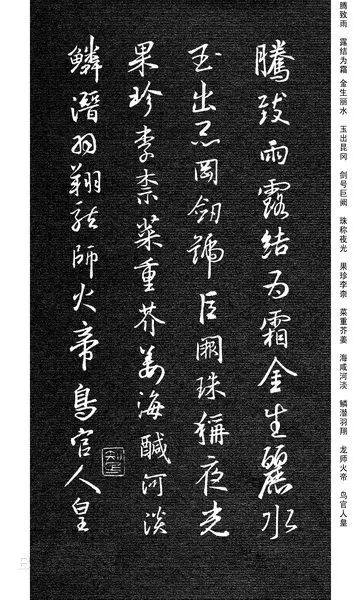 腾致雨 露结为霜 金生丽水 玉出昆冈 剑号巨阙 珠称夜光 果珍李柰 菜重芥姜 海咸河淡 鳞潜羽翔 龙师火帝 鸟官人皇
騰致雨露結為霜金生麗水
玉出崑岡劒號巨闕珠稱夜光
果珍李柰菜重芥薑海鹹河淡
鱗潛羽翔龍師火帝鳥官人皇